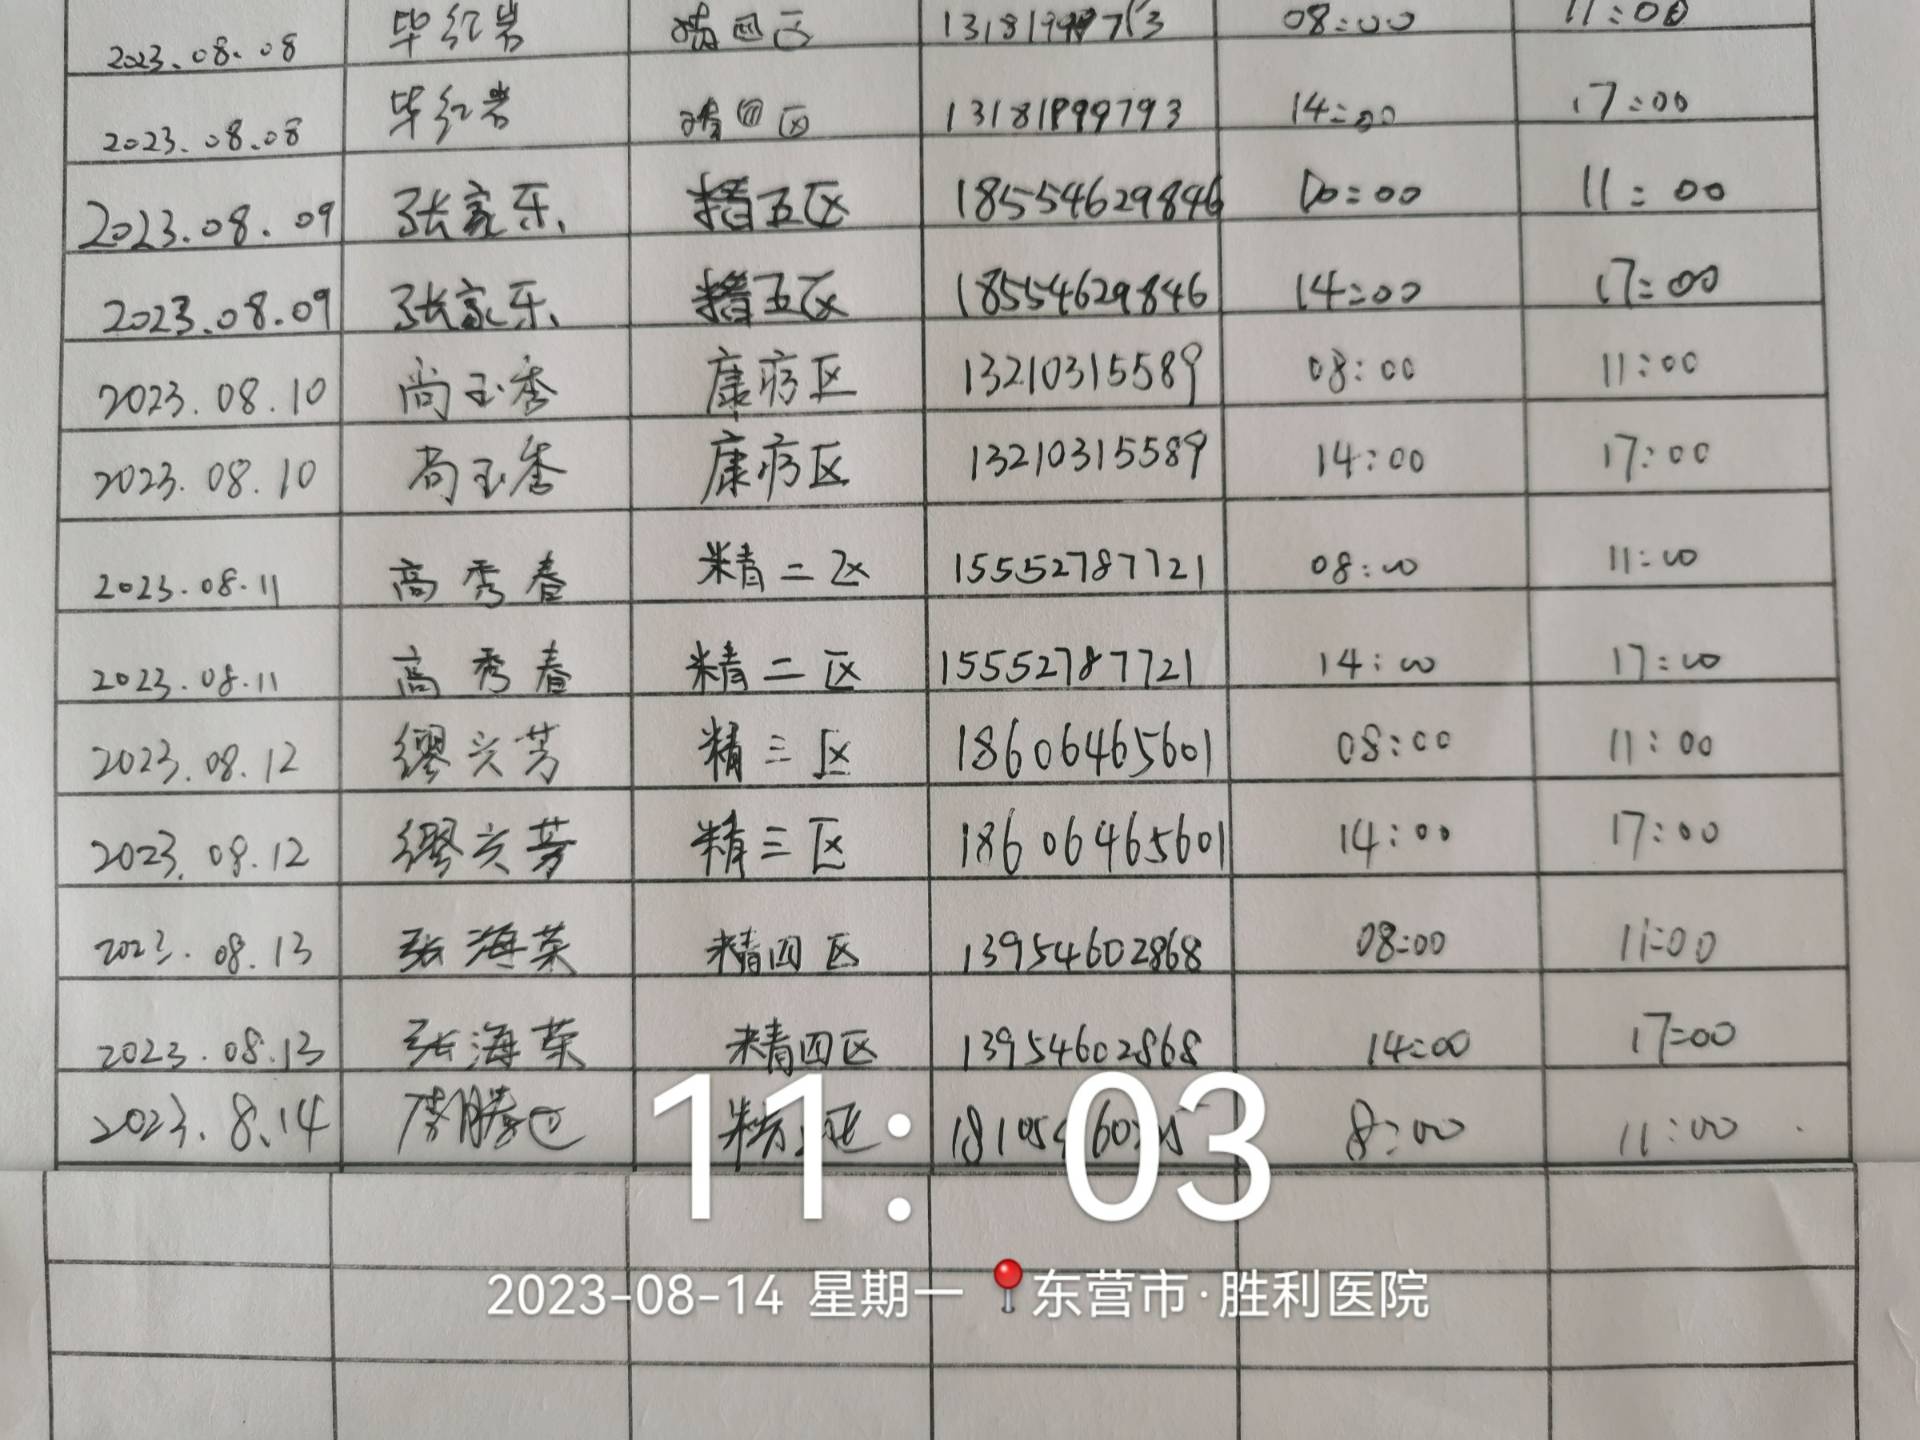 2023.08.08 毕红岩 精四区 08:00 11:00
2023.08.08 毕红岩 精四区 13181899793 14:00 17:00
2023.08.09 张家乐 精五区 18554629846 11:00
2023.08.09 张家乐 精五区 18554629846 14:00 17:00
2023.08.10 尚玉秀 康疗区 13210315589 08:00 11:00
2023.08.10 尚玉秀 康疗区 13210315589 14:00 17:00
2023.08.11 高秀春 精二区 15552787721 08:00 11:00
2023.08.11 高秀春 精二区 15552787721 14:00 17:00
2023.08.12 缪兴芳 精三区 18606465601 08:00 11:00
2023.08.12 缪兴芳 精三区 18606465601 14:00 17:00
2023.08.13 张海荣 精四区 13954602868 08:00 11:00
2023.08.13 张海荣 精四区 13954602868 14:00 17:00
2023.8.14 8:00 11:00
11:03
2023-08-14 星期一 东营市·胜利医院